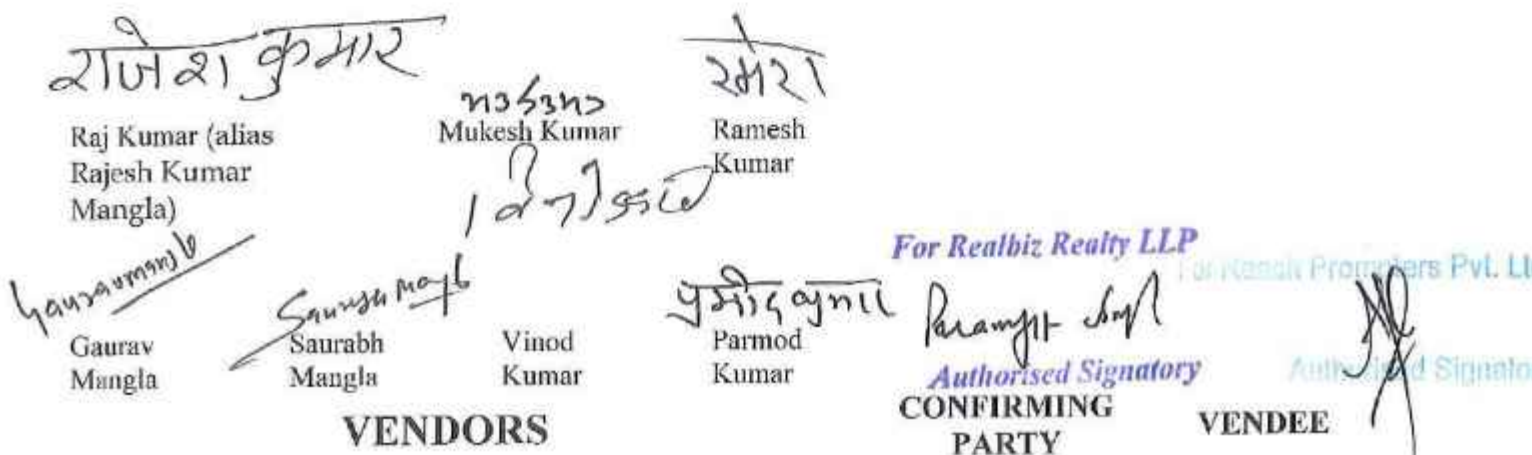 राजेश कुमार
रमेश
Raj Kumar (alias
Rajesh Kumar
Mangla)
Mukesh Kumar
Ramesh
Kumar
Gaurav
Mangla
Saurabh
Mangla
Vinod
Kumar
प्रमोद कुमार
Parmod
Kumar
VENDORS
For Realbiz Realty LLP
Authorised Signatory
CONFIRMING
PARTY
Promoters Pvt.
Authorised
VENDEE